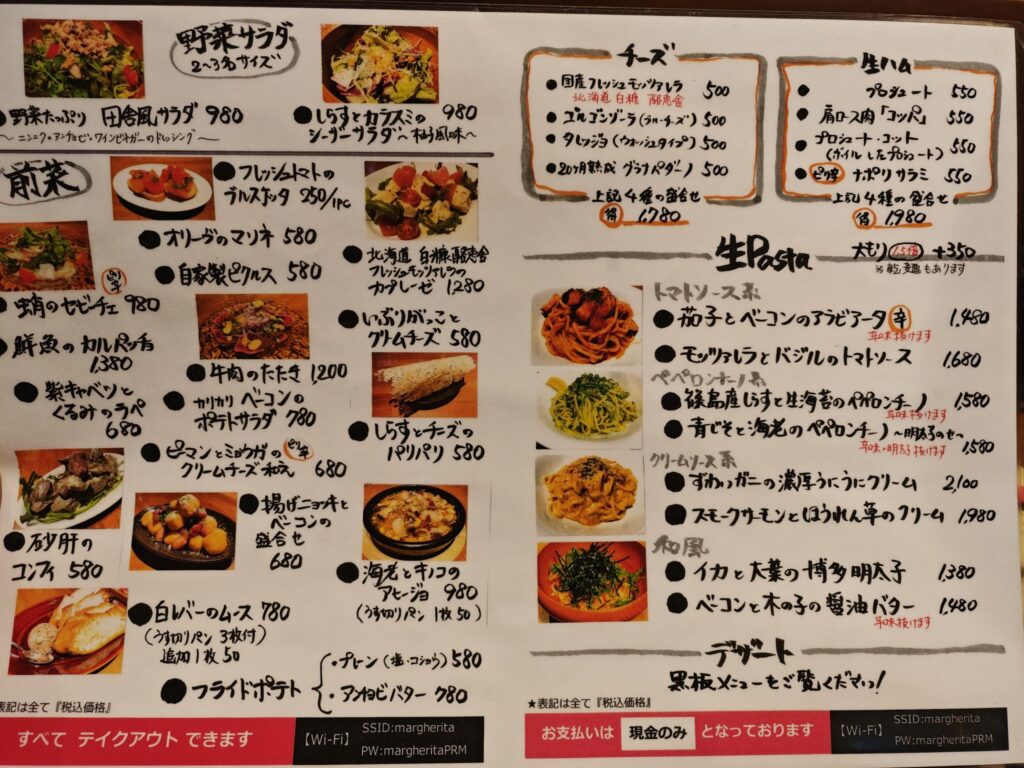 野菜サラダ
2〜3名サイズ
野菜たっぷり 田舎風サラダ 980
〜ニンニク・アンチョビ・ワインビネガーのドレッシング〜
しらすとカラスミの 980
シーザーサラダ〜柚子風味〜
前菜
フレッシュトマトの
ブルスケッタ 250/1PC
オリーヴのマリネ 580
自家製ピクルス 580
ピリ辛
蛸のセビーチェ 980
鮮魚のカルパッチョ
1,380
紫キャベツと
くるみのラペ
680
牛肉のたたき 1,200
カリカリベーコンの
ポテトサラダ 780
ピーマンとミョウガの ピリ辛
クリームチーズ和え 680
北海道 白糠酪恵舎
フレッシュモッツァレラの
カプレーゼ 1,280
いぶりがっこと
クリームチーズ 580
しらすとチーズの
パリパリ 580
砂肝の
コンフィ 580
揚げニョッキと
ベーコンの
盛合せ
680
海老とキノコの
アヒージョ 980
(うす切りパン 1枚50)
白レバーのムース 780
(うす切りパン 3枚付)
追加1枚50
フライドポテト
・プレーン(塩・コショウ) 580
・アンチョビバター 780
表記は全て『税込価格』
すべて テイクアウト できます
【Wi-Fi】
SSID:margherita
PW:margheritaPRM
チーズ
国産フレッシュモッツァレラ 500
北海道 白糠 酪恵舎
ゴルゴンゾーラ(ブルーチーズ) 500
タレッジョ(ウォッシュタイプ) 500
20ヶ月熟成 グラナパダーノ 500
上記4種の盛合せ
得 1,780
生ハム
プロシュート 550
肩ロース肉「コッパ」 550
プロシュート・コット
(ボイルしたプロシュート) 550
ピリ辛 ナポリサラミ 550
上記4種の盛合せ
得 1,980
生Pasta
大もり 1.5倍 +350
※乾麺もあります
トマトソース系
茄子とベーコンのアラビアータ 辛 1,480
辛味抜けます
モッツァレラとバジルのトマトソース 1,680
ペペロンチーノ系
篠島産しらすと生海苔のペペロンチーノ 1,580
辛味抜けます
青じそと海老のペペロンチーノ〜明太子のせ〜
辛味・明太子抜けます 1,580
クリームソース系
ずわいガニの濃厚うにうにクリーム 2,100
スモークサーモンとほうれん草のクリーム 1,980
和風
イカと大葉の博多明太子 1,380
ベーコンと木の子の醤油バター 1,480
辛味抜けます
デザート
黒板メニューをご覧ください!
★表記は全て『税込価格』
お支払いは 現金のみ となっております
【Wi-Fi】
SSID:margherita
PW:margheritaPRM